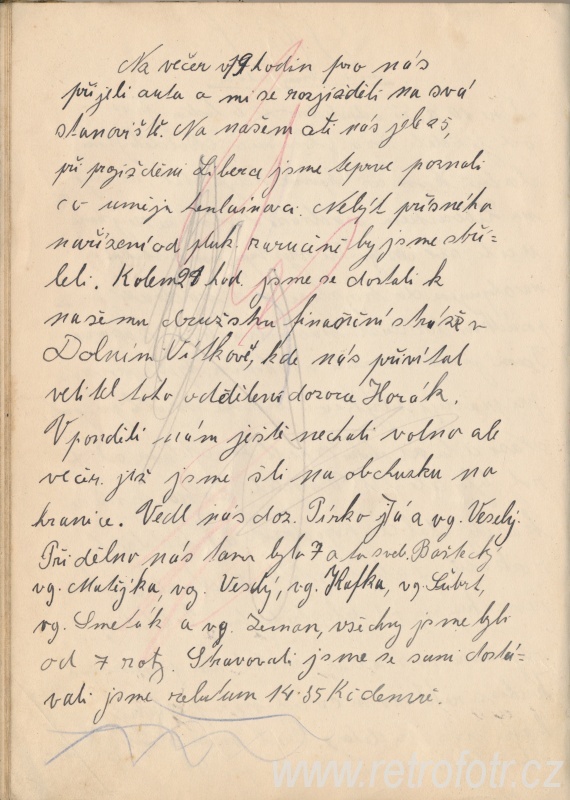 Na večer v 19 hodin pro nás
přijeli auta a mi se rozjížděli na svá
stanoviště. Na našem autě nás jelo 25,
při projíždění Liberce jsme teprve poznali
co umějí henlajnovci. Nebýt přísného
nařízení od pluk. zaručeně by jsme stří=
leli. Kolem 21 hod. jsme se dostali k
našemu družstvu finanční stráže v
Dolním Vítkově, kde nás přivítal
velitel toho oddělení dozorce Horák.
V pondělí nám ještě nechali volno ale
večer již jsme šli na obchuzku na
hranice. Vedl nás doz. Pírko Já a vg. Veselý.
Přiděleno nás tam bylo 7 a to svob. Bastecký
vg. Matějka, vg. Veselý, vg. Kafka, vg. Šubrt,
vg. Smeták a vg. Zeman, všichny jsme byli
od 7 roty. Stravovali jsme se sami dostá=
vali jsme relutum 14.35 Kč denně.
www.retrofotr.cz